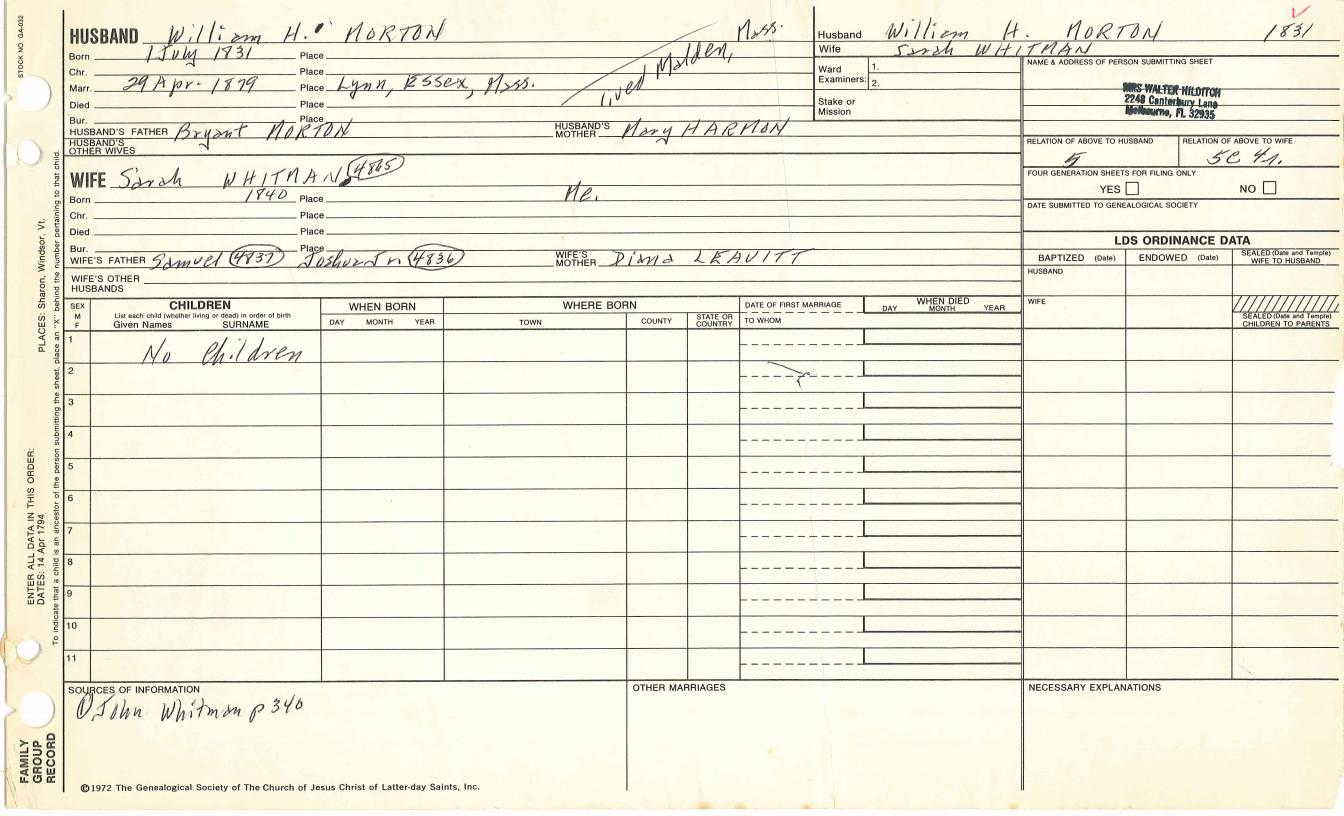 STOCK NO. GA-032
PLACES: Sharon, Windsor, Vt.
ENTER ALL DATA IN THIS ORDER:
DATES: 14 Apr 1794
To indicate that a child is an ancestor of the person submitting the sheet, place an "X" behind the number pertaining to that child.
FAMILY GROUP RECORD
HUSBAND William H. MORTON
Born 1 July 1831 Place
Chr. Place
Marr. 29 Apr. 1879 Place Lynn, Essex, Mass.
Died Place
Bur. Place
lived Malden, Mass.
HUSBAND'S FATHER Bryant MORTON HUSBAND'S MOTHER Mary HARMON
HUSBAND'S OTHER WIVES
WIFE Sarah WHITMAN 4865
Born 1840 Place Me.
Chr. Place
Died Place
Bur. Place
WIFE'S FATHER Samuel 4837 Joshua Jr. 4836 WIFE'S MOTHER Diana LEAVITT
WIFE'S OTHER HUSBANDS
Husband William H. MORTON 1831
Wife Sarah WHITMAN
Ward Examiners: 1. 2.
Stake or Mission
NAME & ADDRESS OF PERSON SUBMITTING SHEET
MRS WALTER HILDITCH
2248 Canterbury Lane
Melbourne, FL 32935
RELATION OF ABOVE TO HUSBAND RELATION OF ABOVE TO WIFE
5C 4r.
FOUR GENERATION SHEETS FOR FILING ONLY
YES NO
DATE SUBMITTED TO GENEALOGICAL SOCIETY
LDS ORDINANCE DATA
BAPTIZED (Date) ENDOWED (Date) SEALED (Date and Temple) WIFE TO HUSBAND
HUSBAND
WIFE
SEALED (Date and Temple) CHILDREN TO PARENTS
SEX M F CHILDREN WHEN BORN WHERE BORN DATE OF FIRST MARRIAGE WHEN DIED
List each child (whether living or dead) in order of birth
Given Names SURNAME DAY MONTH YEAR TOWN COUNTY STATE OR COUNTRY TO WHOM DAY MONTH YEAR
1 No Children
2
3
4
5
6
7
8
9
10
11
SOURCES OF INFORMATION OTHER MARRIAGES NECESSARY EXPLANATIONS
① John Whitman p 340
©1972 The Genealogical Society of The Church of Jesus Christ of Latter-day Saints, Inc.